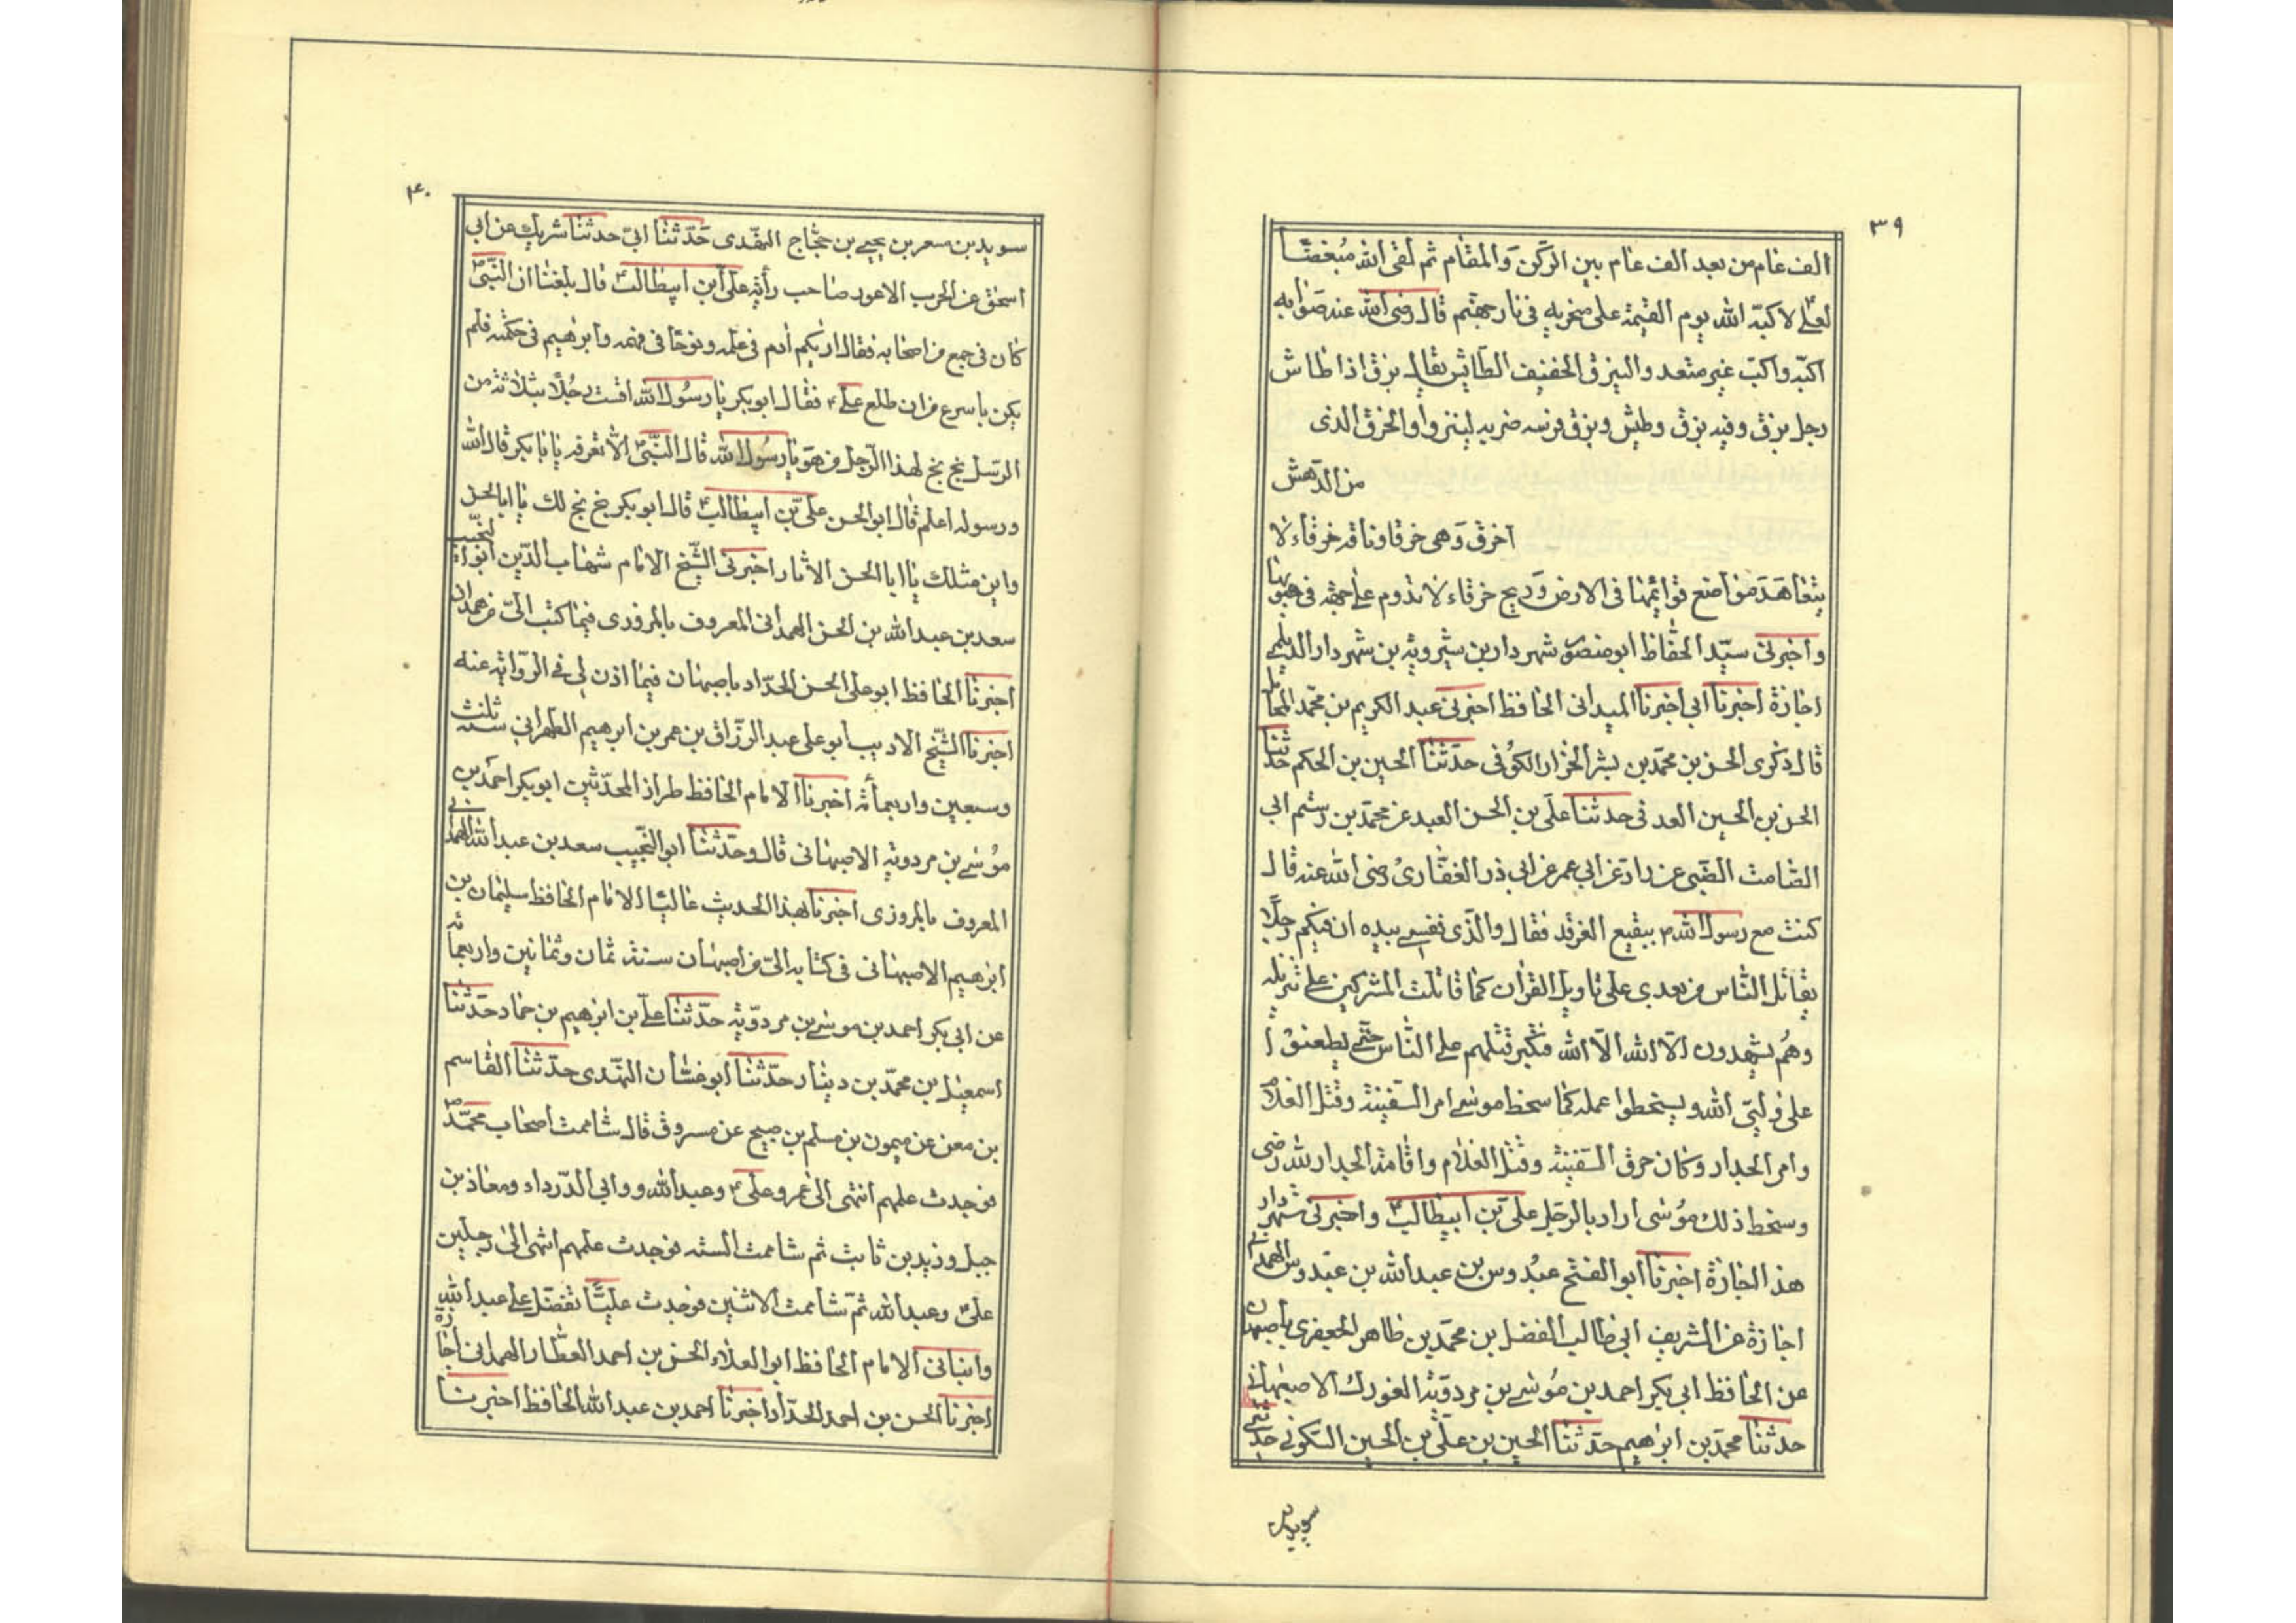 ٣٩
الف عام من بعد الف عام بين الركن والمقام ثم لقى الله مبغضا
لعلى لاكبه الله يوم القيمة على منخريه فى نار جهنم قال رضى الله عنه صوابه
اكبه واكب غير متعد والنزق الخفيف الطائش يقال نزق اذا طاش
رجل نزق وفيه نزق وطيش ونزق فرسه ضربه لينزوا والخرق الذى
من الدهش
اخرق وهى خرقا وناقه خرقاء لا
يتعاهد مواضع قوائمها فى الارض وريح خرقاء لا تدوم على جهة فى هبوبها
واخبرنى سيد الحفاظ ابو منصور شهردار بن شيرويه بن شهردار الديلمى
اجازة اخبرنا ابى اخبرنا الميدانى الحافظ اخبرنى عبد الكريم بن محمد المحاملى
قال ذكرى الحسن بن محمد بن بشر الخزار الكوفى حدثنا الحسين بن الحكم حدثنا
الحسن بن الحسين العدنى حدثنا على بن الحسن العبد عن محمد بن رستم ابى
الصامت الضبى عن زاد عن ابى عمر عن ابى ذر الغفارى رضى الله عنه قال
كنت مع رسول الله ص ببقيع الغرقد فقال والذى نفسى بيده ان فيكم رجلا
يقاتل الناس من بعدى على تاويل القران كما قاتلت المشركين على تنزيله
وهم يشهدون الا اله الا الله فيكبر قتلهم على الناس حتى يطعنوا
على ولى الله ويسخطوا عمله كما سخط موسى امر السفينة وقتل الغلام
وامر الجدار وكان خرق السفينة وقتل الغلام واقامة الجدار لله رضى
وسخط ذلك موسى اراد بالرجل على بن ابيطالب واخبرنى شهردار
هذا اجازة اخبرنا ابو الفتح عبدوس بن عبد الله بن عبدوس الهمدانى
اجازة عن الشريف ابى طالب الفضل بن محمد بن طاهر الجعفرى باصبهان
عن الحافظ ابى بكر احمد بن موسى بن مردويه الفورك الاصبهانى
حدثنا محمد بن ابرهيم حدثنا الحسين بن على بن الحسين السكونى حدثنى
سويد بن
۴۰
سويد بن مسعر بن يحيى بن حجاج النهدى حدثنا ابى حدثنا شريك عن ابى
اسحق عن الحرب الاعور صاحب رأية على ابن ابيطالب قال بلغنا ان النبى
كان فى جمع من اصحابه فقال اريكم ادم فى علمه ونوحا فى فهمه وابرهيم فى حكمته فلم
يكن باسرع من ان طلع على فقال ابو بكر يا رسول الله اقست رجلا بثلاثة من
الرسل بخ بخ لهذا الرجل من هو يا رسول الله قال النبى الا تعرفه يا ابا بكر قال الله
ورسوله اعلم قال ابو الحسن على بن ابيطالب قال ابو بكر بخ بخ لك يا ابا الحسن
واين مثلك يا ابا الحسن الاثار اخبرنى الشيخ الامام شهاب الدين ابو النجيب
سعد بن عبد الله بن الحسن الهمدانى المعروف بالمروزى فيما كتب الى من همدان
اخبرنا الحافظ ابو على الحسن الحداد باصبهان فيما اذن لى فى الرواية عنه
اخبرنا الشيخ الاديب ابو على عبد الرزاق بن عمر بن ابرهيم الطهرانى سنة ثلث
وسبعين واربعمأئة اخبرنا الامام الحافظ طراز المحدثين ابو بكر احمد بن
موسى بن مردويه الاصبهانى قال وحدثنا ابو النجيب سعد بن عبد الله الهمدانى
المعروف بالمروزى اخبرنا بهذا الحديث عاليا الامام الحافظ سليمان بن
ابرهيم الاصبهانى فى كتابه الى من اصبهان سنة ثمان وثمانين واربعمائه
عن ابى بكر احمد بن موسى بن مردويه حدثنا على بن ابرهيم بن حماد حدثنا
اسمعيل بن محمد بن دينار حدثنا ابو غسان النهدى حدثنا القاسم
بن معن عن ميمون بن مسلم بن صبيح عن مسروق قال شاممت اصحاب محمد ص
فوجدت علمهم انتهى الى عمر وعلى وعبد الله و وابى الدرداء ومعاذ بن
جبل وزيد بن ثابت ثم شاممت الستة فوجدت علمهم انتهى الى رجلين
على وعبد الله ثم شاممت الاثنين فوجدت عليا تفضل على عبد الله
وانبانى الامام الحافظ ابو العلاء الحسن بن احمد العطار الهمدانى اجازة
اخبرنا الحسن بن احمد الحداد اخبرنا احمد بن عبد الله الحافظ اخبرنا